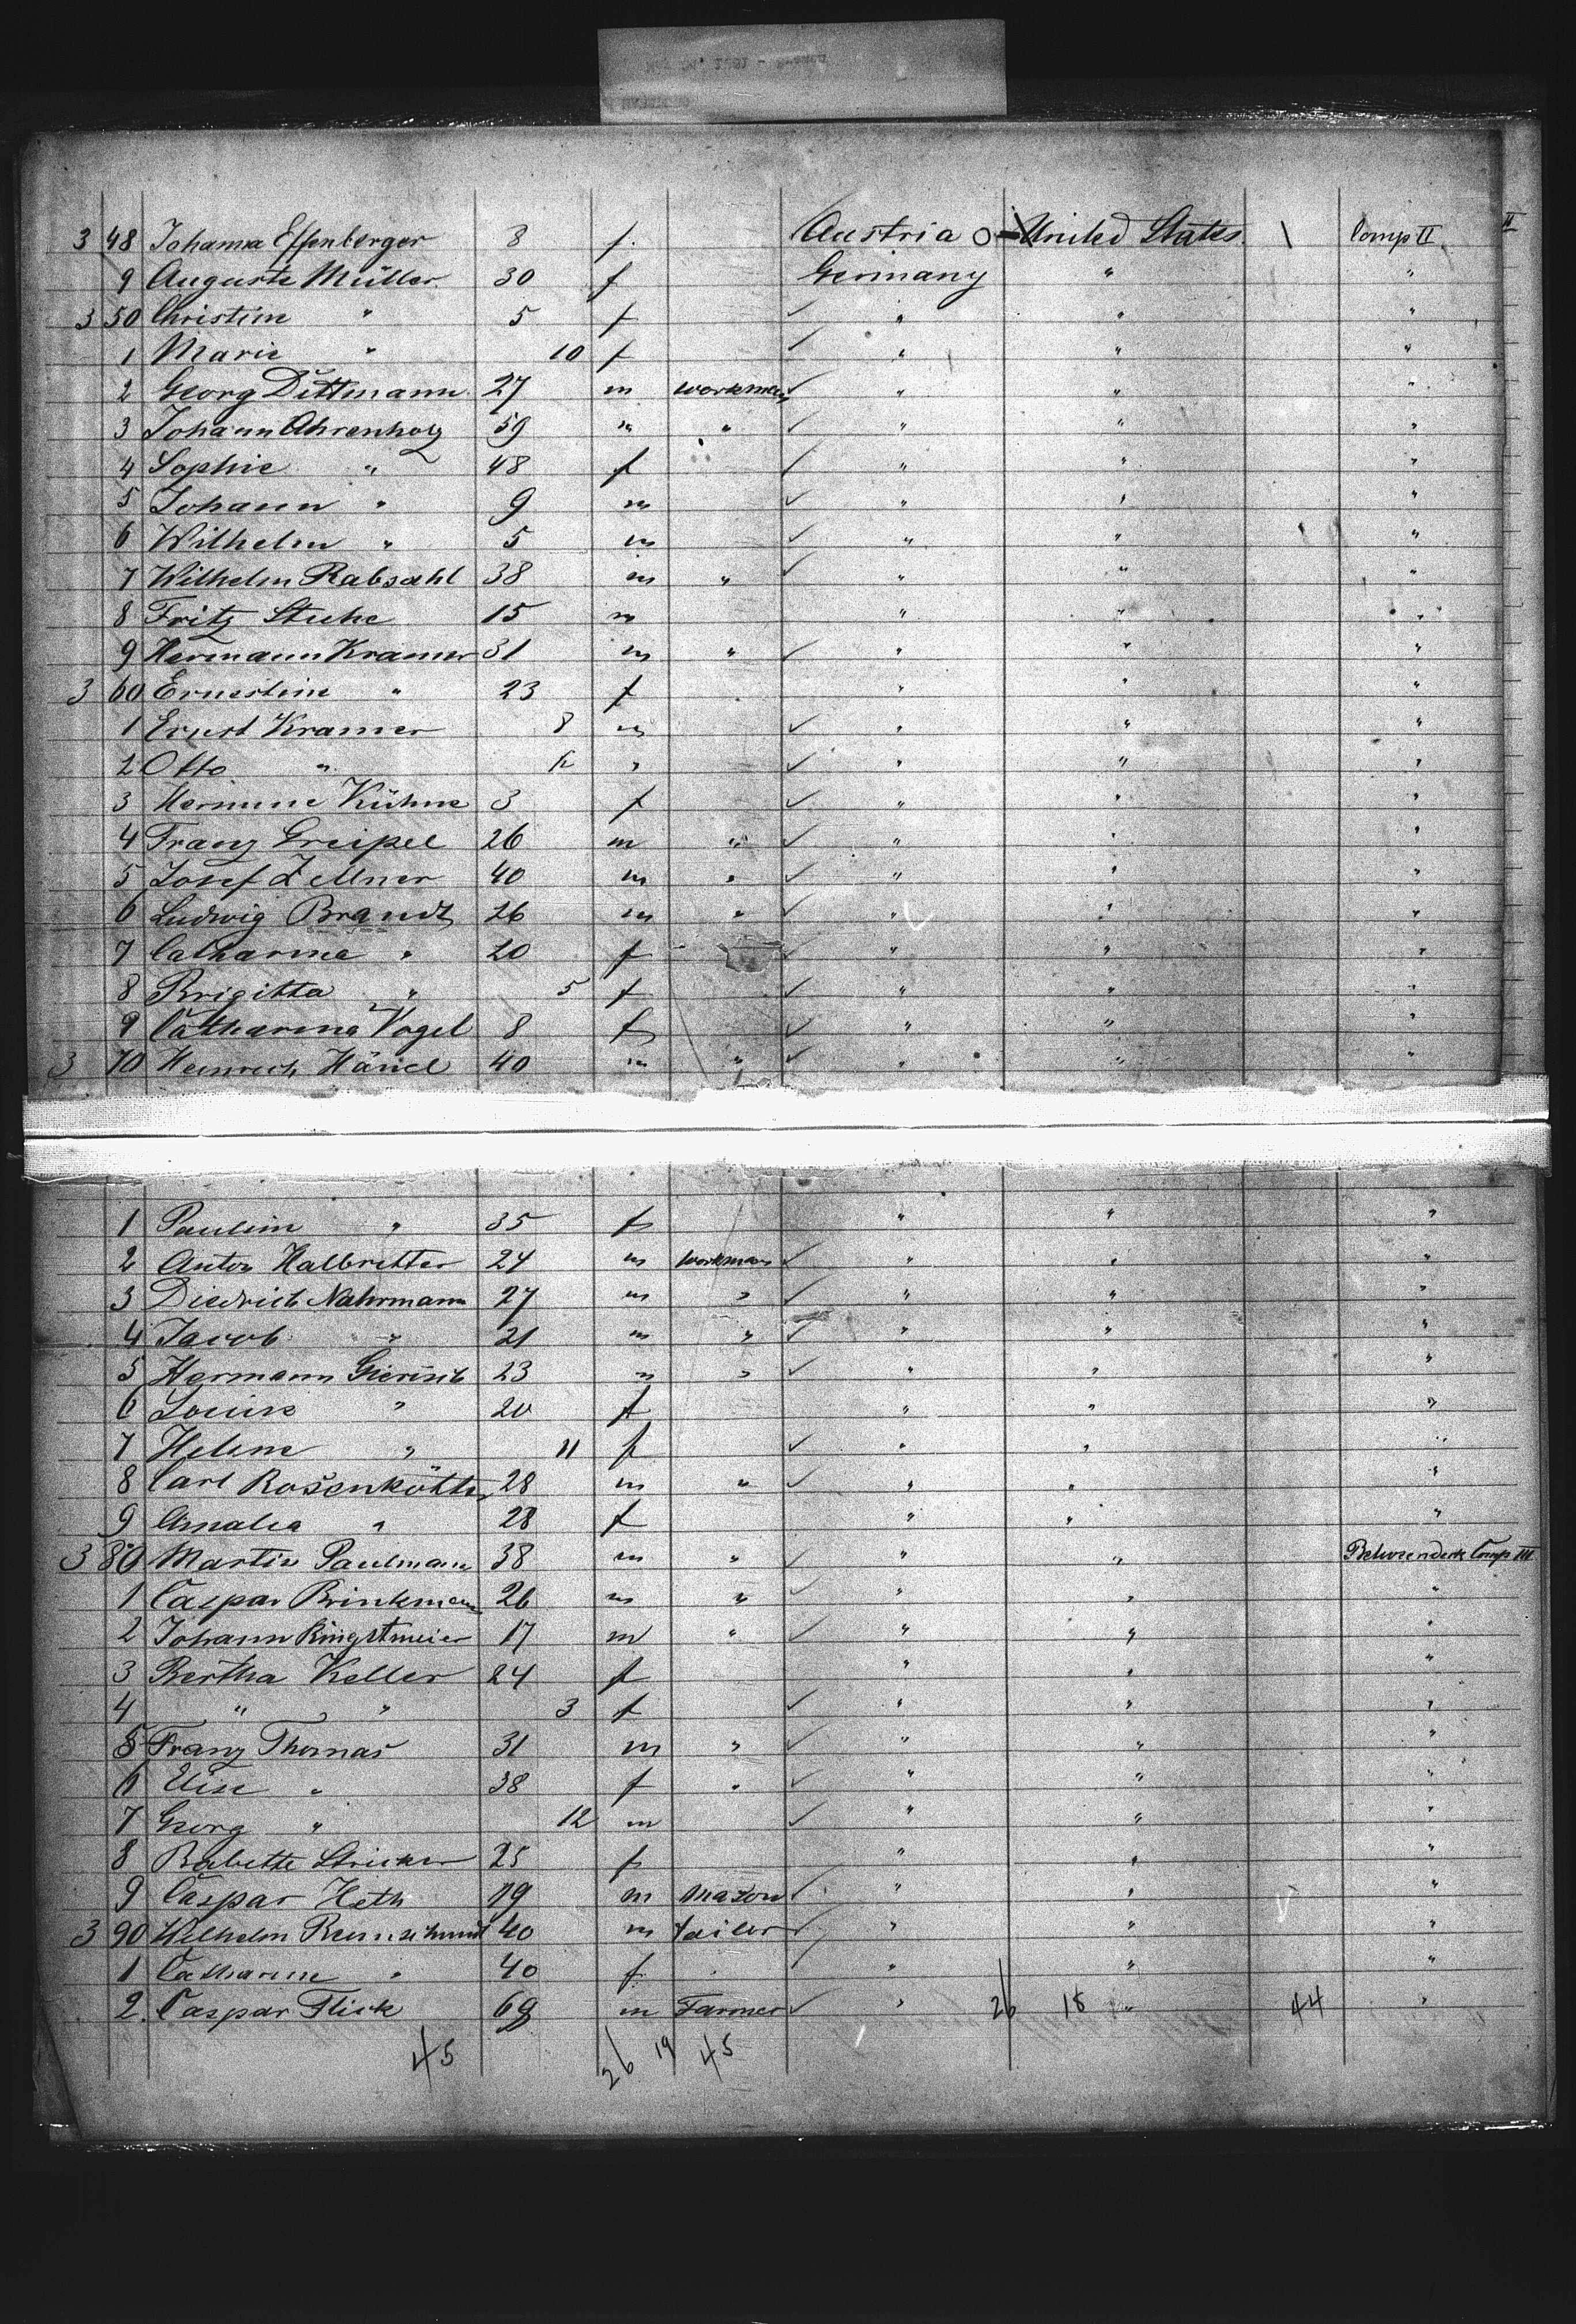 3 48 Johanna Effenberger 8 f. Austria O United States \ Comp II
9 Auguste Müller 30 f Germany " "
3 50 Christine " 5 f ✓ " " "
1 Marie " 10 f ✓ " " "
2 Georg Dittmann 27 m workman ✓ " " "
3 Johann Ahrenholz 59 m " ✓ " " "
4 Sophie " 48 f ✓ " " "
5 Johann " 9 m ✓ " " "
6 Wilhelm " 5 m ✓ " " "
7 Wilhelm Rabsahl 38 m " ✓ " " "
8 Fritz Stuhe 15 m " " "
9 Hermann Kramer 31 m " ✓ " " "
3 60 Ernestine " 23 f " " "
1 Ernst Kramer 8 m ✓ " " "
2 Otto " " ✓ " " "
3 Hermine Kühne 3 f ✓ " " "
4 Franz Greipel 26 m " ✓ " " "
5 Josef Zellner 40 m " ✓ " " "
6 Ludwig Brandt 26 m " ✓ " " "
7 Catharina " 20 f ✓ " " "
8 Brigitta " 5 f ✓ " " "
9 Catharina Vogel 8 f ✓ " " "
3 70 Heinrich Hänel 40 m " ✓ " " "
1 Pauline " 35 f " " "
2 Anton Halbritter 24 m workman ✓ " " "
3 Diedrich Nahrmann 27 m " ✓ " " "
4 Jacob " 21 m " ✓ " " "
5 Hermann Gierisch 23 m " ✓ " " "
6 Louise " 20 f " " "
7 Helene " 11 f ✓ " " "
8 Carl Rosenkötter 28 m " ✓ " " "
9 Amalia " 28 f " " "
3 80 Martin Paulmann 38 m " ✓ " " Comp III
1 Caspar Brinkmann 26 m " ✓ " " "
2 Johann Ringstmeier 17 m " ✓ " " "
3 Bertha Keller 24 f " " "
4 " " 3 f ✓ " " "
5 Franz Thomas 31 m " ✓ " " "
6 Elise " 38 f " ✓ " " "
7 Georg " 12 m ✓ " " "
8 Babette Stricker 25 f " " "
9 Caspar Heth 19 m mason ✓ " " "
3 90 Wilhelm 40 m tailor ✓ " " "
1 Catharine " 40 f. ✓ " " "
2. Caspar Flick 69 m Farmer ✓ " 26 18 " 44 "
45 26 19 45